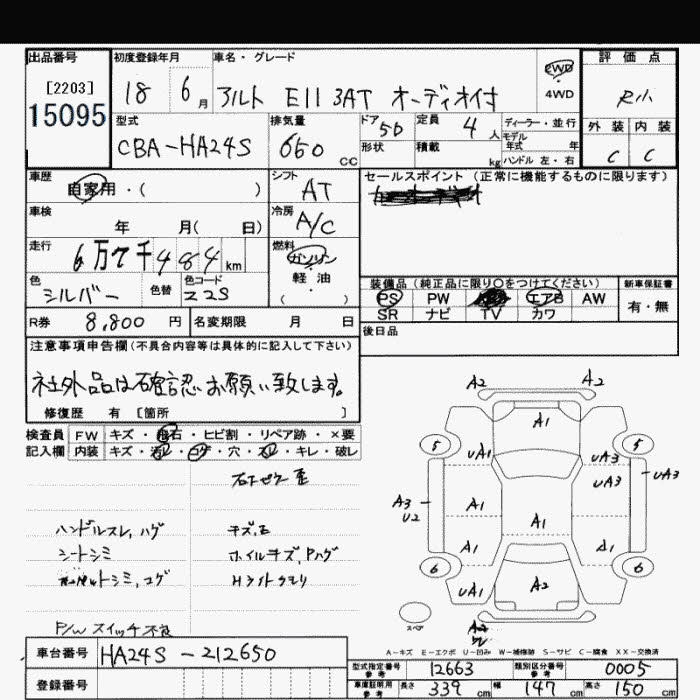 出品番号 初度登録年月 車名・グレード 2WD 評価点
[2203] 18 6月 アルト E11 3AT オーディオ付 4WD
15095 型式 排気量 ドア 5D 定員 4人 ディーラー・並行 外装 内装
CBA-HA24S 660 cc 形状 積載 kg モデル年式 年 C C
ハンドル 左・右
車歴 自家用・( ) シフト AT セールスポイント(正常に機能するものに限ります)
車検 年 月( 日) 冷房 A/C
走行 6万7千484km 燃料 ガソリン
軽油 ( )
色 シルバー 色替 色コード Z2S 装備品(純正品に限り〇をつけてください) 新車保証書
PS PW エアB AW 有・無
R券 8,800円 名変期限 月 日 SR ナビ TV カワ
後日品
注意事項申告欄(不具合内容等は具体的に記入して下さい)
社外品は確認お願い致します。
修復歴 有 [箇所 ]
検査員 FW キズ・飛石・ヒビ割・リペア跡・×要
記入欄 内装 キズ・汚レ・コゲ・穴・スレ・キレ・破レ
ハンドルスレ,ハゲ キズ,石
シートシミ ホイルキズ,Pハゲ
シミ,コゲ Hライトクモリ
P/W スイッチ不良
A2 A2
A1
5 5
uA1 uA3
uA3 uA3
A3 U2 A1 A1
A1 A1
6 6
uA1 A2 uA1
スペア
A-キズ E-エクボ U-凹み W-補修跡 S-サビ C-腐食 XX-交換済
車台番号 HA24S-212650
型式指定番号 参考 12663 類別区分番号 参考 0005
登録番号
車庫証明用 参考 長さ 339cm 幅 147cm 高さ 150cm